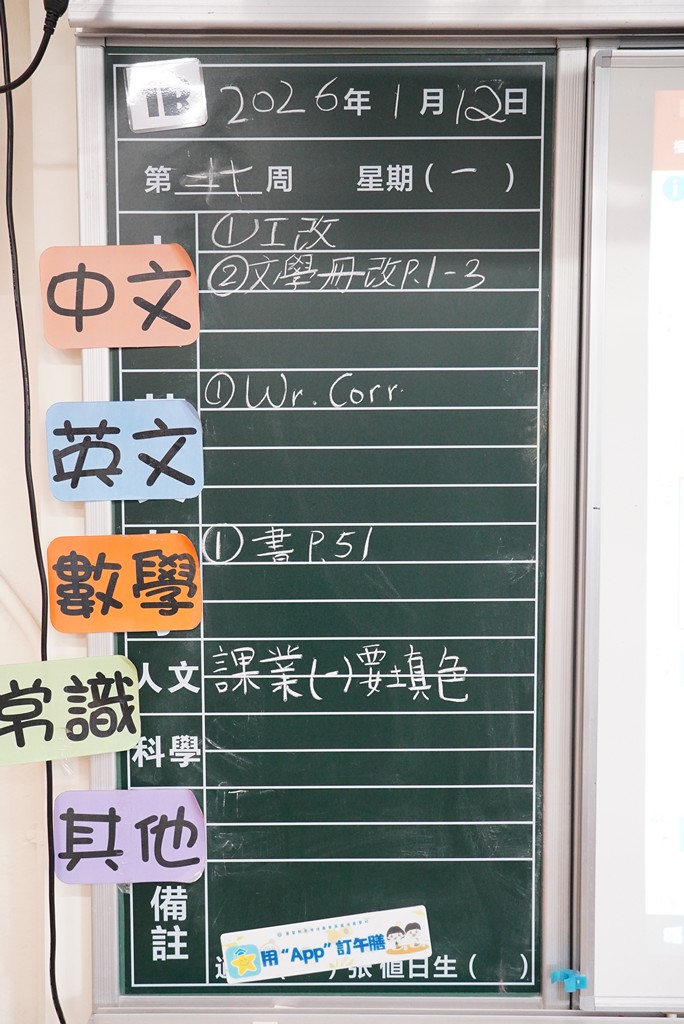 1B 2026年1月12日
第二十周 星期(一)
中文
①工改
②文學冊改P.1-3
英文
①Wr. Corr.
數學
①書P.51
常識
人文
課業(一)要填色
科學
其他
備註
用“App”訂午膳
張 值日生( )